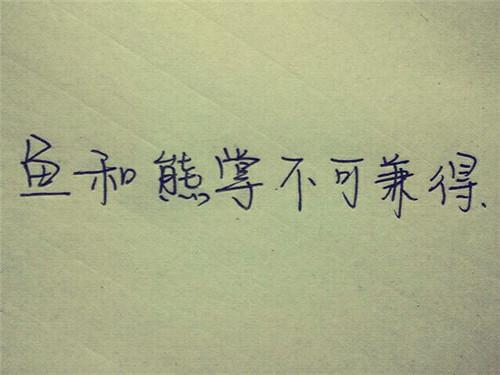 鱼和熊掌不可兼得.